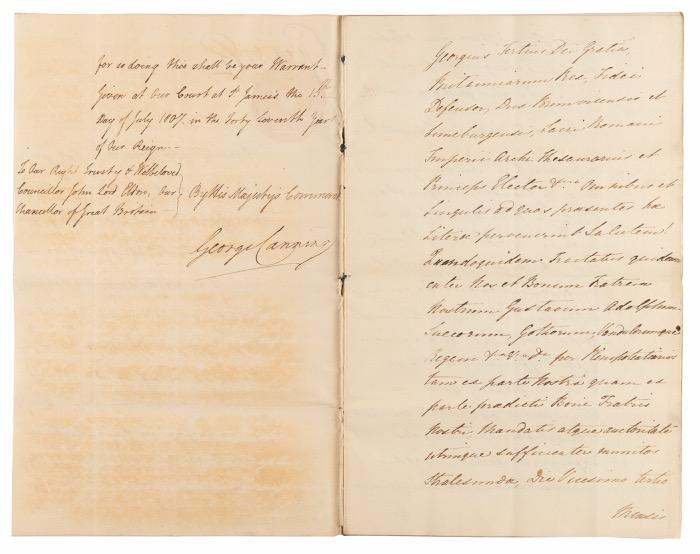 for so doing this shall be your Warrant—
Given at Our Court at St. James's the 15th
Day of July 1807. in the Forty Seventh Year
of Our Reign—
To Our Right Trusty & Welbeloved
Councillor John Lord Eldon, Our
Chancellor of Great Britain—
By His Majesty's Command
George Canning
Georgius Tertius Dei Gratiâ,
Britanniarum Rex, Fidei
Defensor, Dux Brunsvicensis et
Luneburgensis, Sacri Romani
Imperii Archi Thesaurarius et
Princeps Elector &ca Omnibus et
Singulis ad quos praesentes hae
Literae pervenerint Salutem!
Quandoquidem Tractatus quidam
inter Nos et Bonum Fratrem
Nostrum Gustavum Adolphum
Suecorum, Gothorum, Vandalorumque
Regem &ca &ca &ca per Plenipotentiarios
tam ex parte Nostrâ quam ex
parte praedicti Boni Fratris
Nostri, Mandatis atque autoritate
utrinque sufficienter munitos
Stralsundae, Die Vicesimo tertio
Mensis